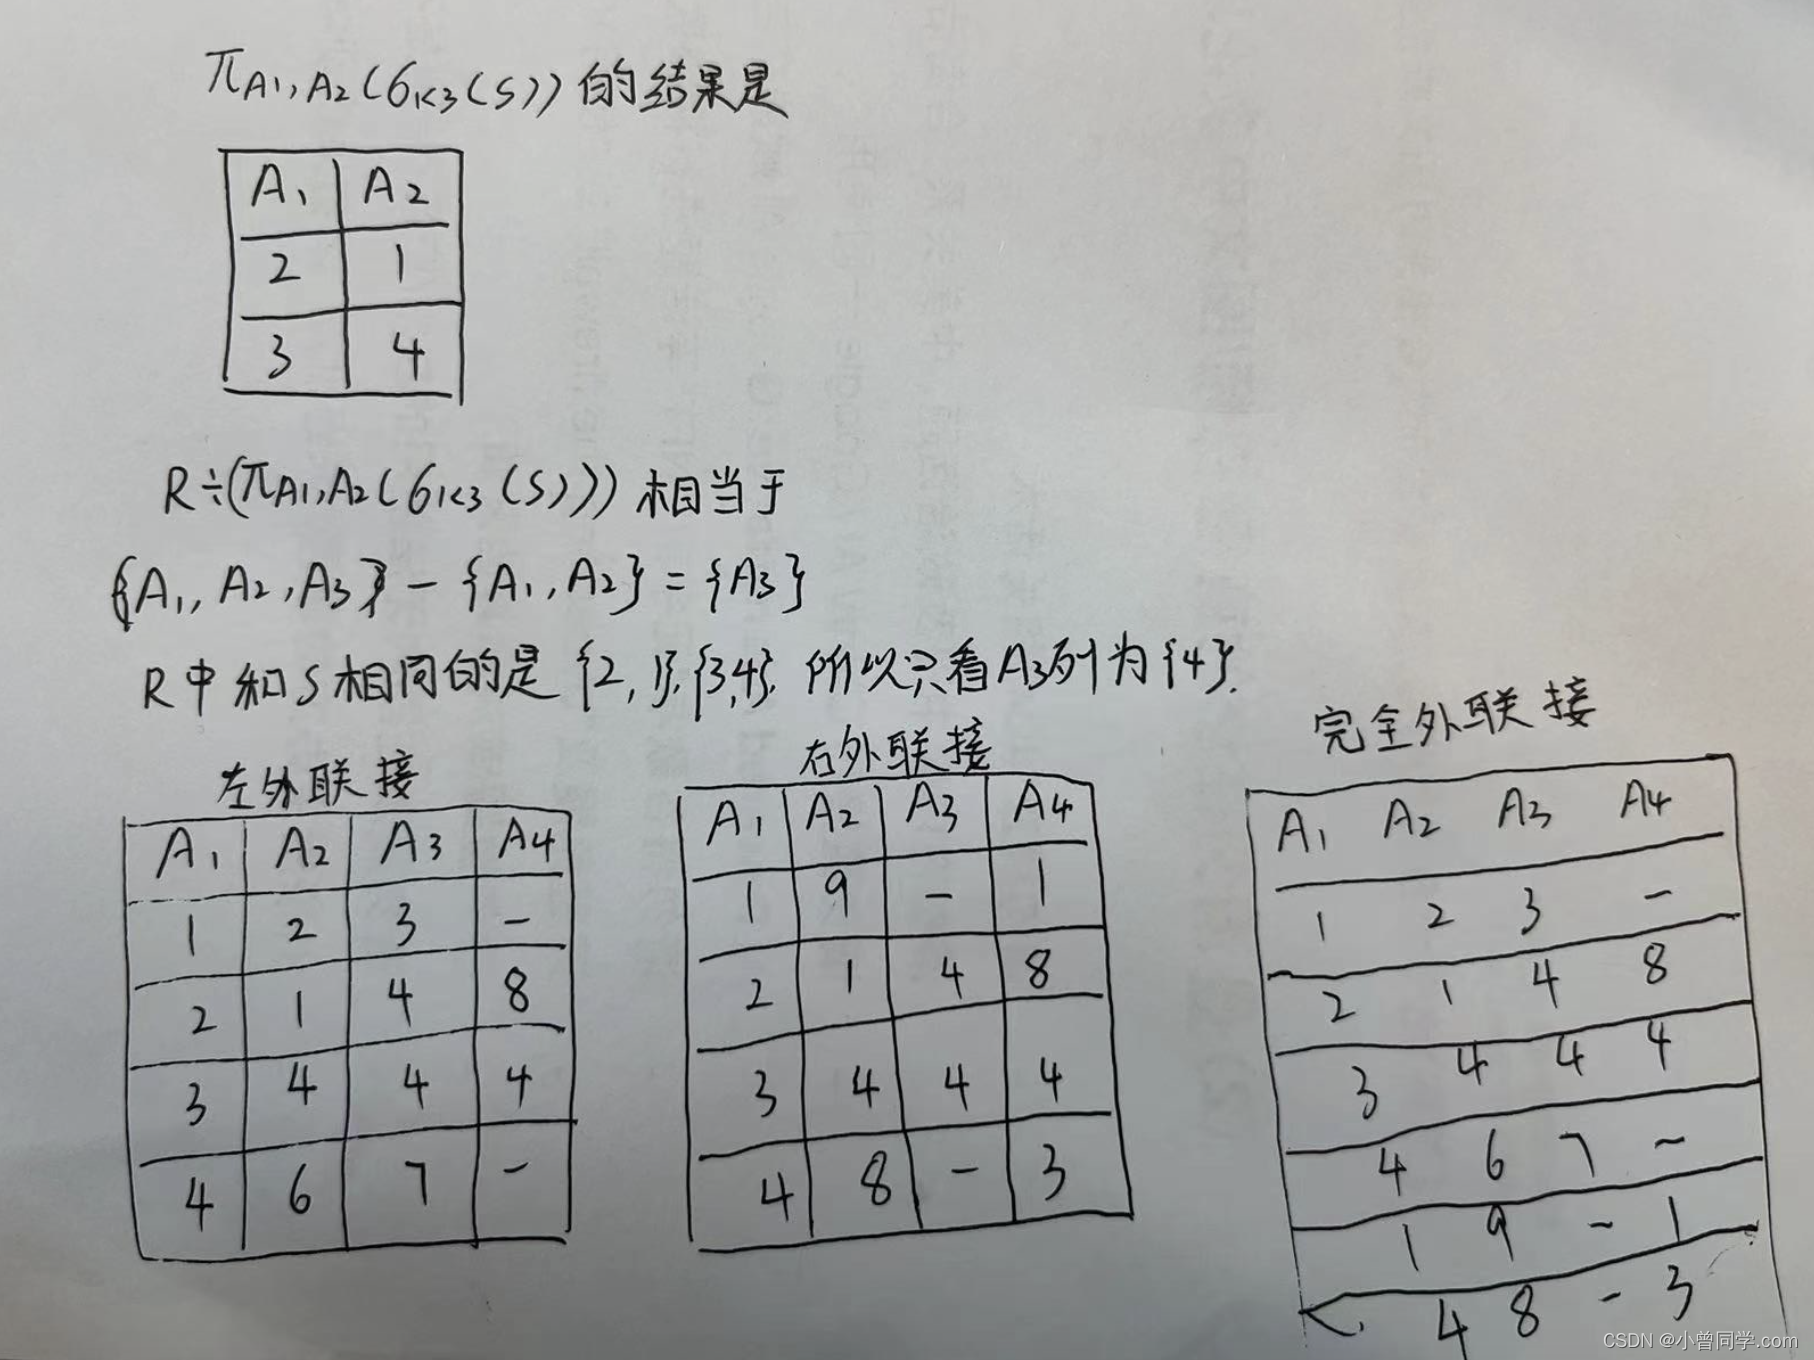 πA1,A2(σ1<3(S))的结果是
A1 A2
2 1
3 4
R÷(πA1,A2(σ1<3(S)))相当于
{A1,A2,A3}-{A1,A2}={A3}
R中和S相同的是{2,1},{3,4}.所以只看A3列为{4}.
左外联接
A1 A2 A3 A4
1 2 3 -
2 1 4 8
3 4 4 4
4 6 7 -
右外联接
A1 A2 A3 A4
1 9 - 1
2 1 4 8
3 4 4 4
4 8 - 3
完全外联接
A1 A2 A3 A4
1 2 3 -
2 1 4 8
3 4 4 4
4 6 7 -
1 9 - 1
4 8 - 3
CSDN @小曾同学.com